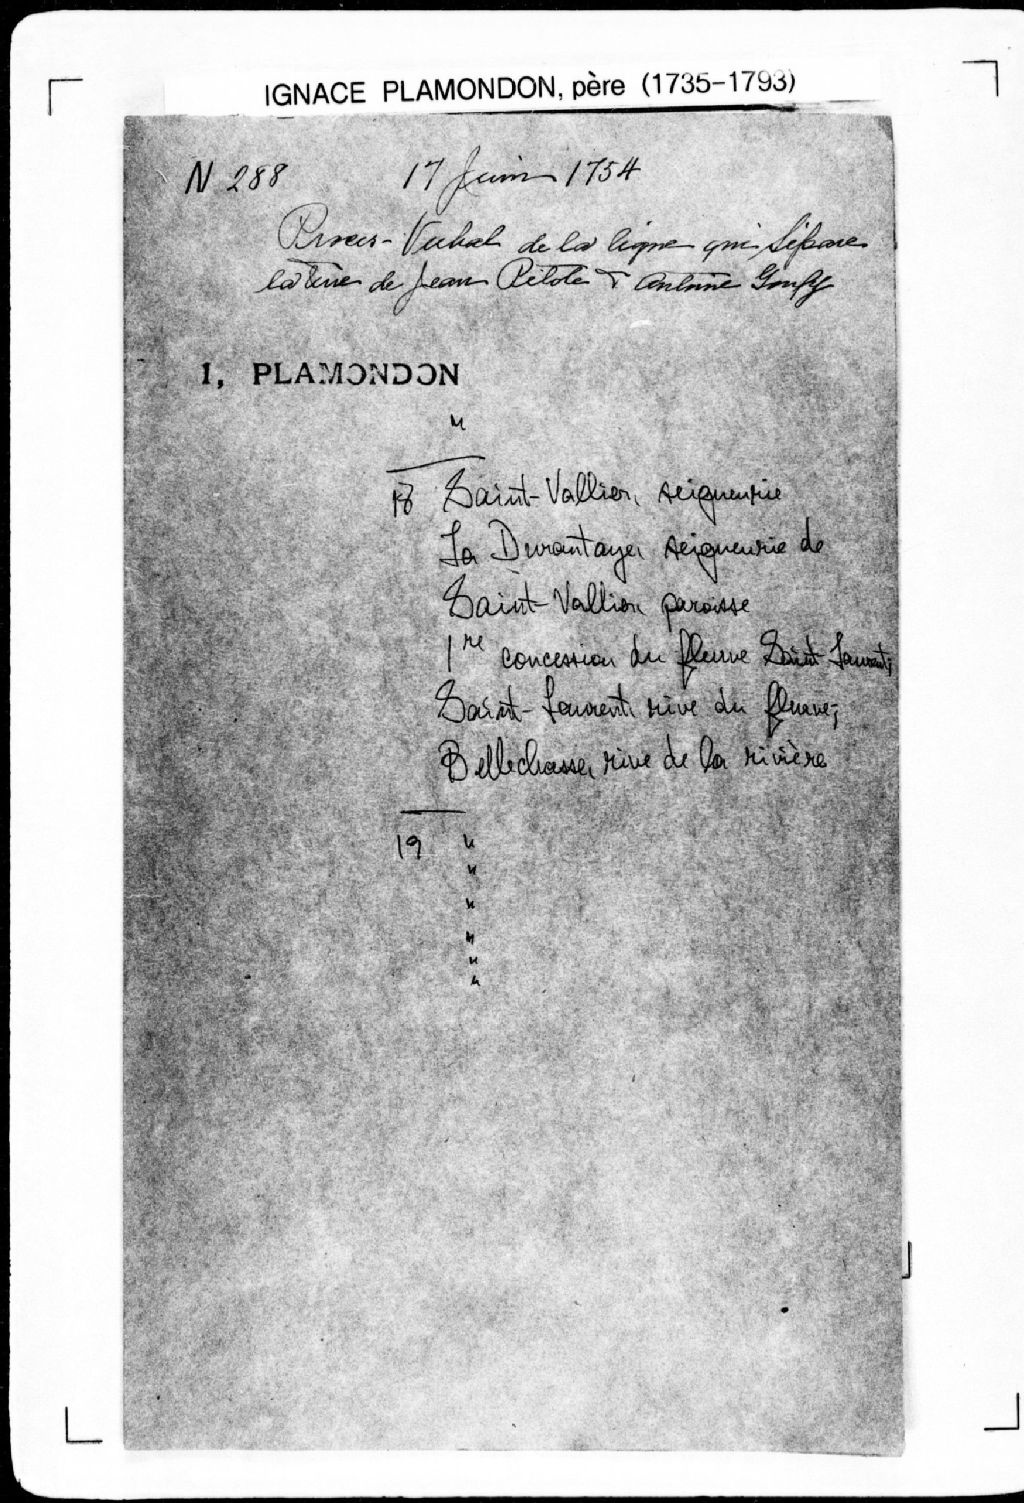 IGNACE PLAMONDON, père (1735-1793)
N 288 17 Juin 1754
Proces-Verbal de la ligne qui Separe
la terre de Jean Pilote & Antoine
I, PLAMONDON
"
18 Saint-Vallier, seigneurie
La Durantaye, seigneurie de
Saint-Vallier, paroisse
1re concession du fleuve Saint-Laurent;
Saint-Laurent, rive du fleuve;
Bellechasse, rive de la rivière
19 "
"
"
"
"
"